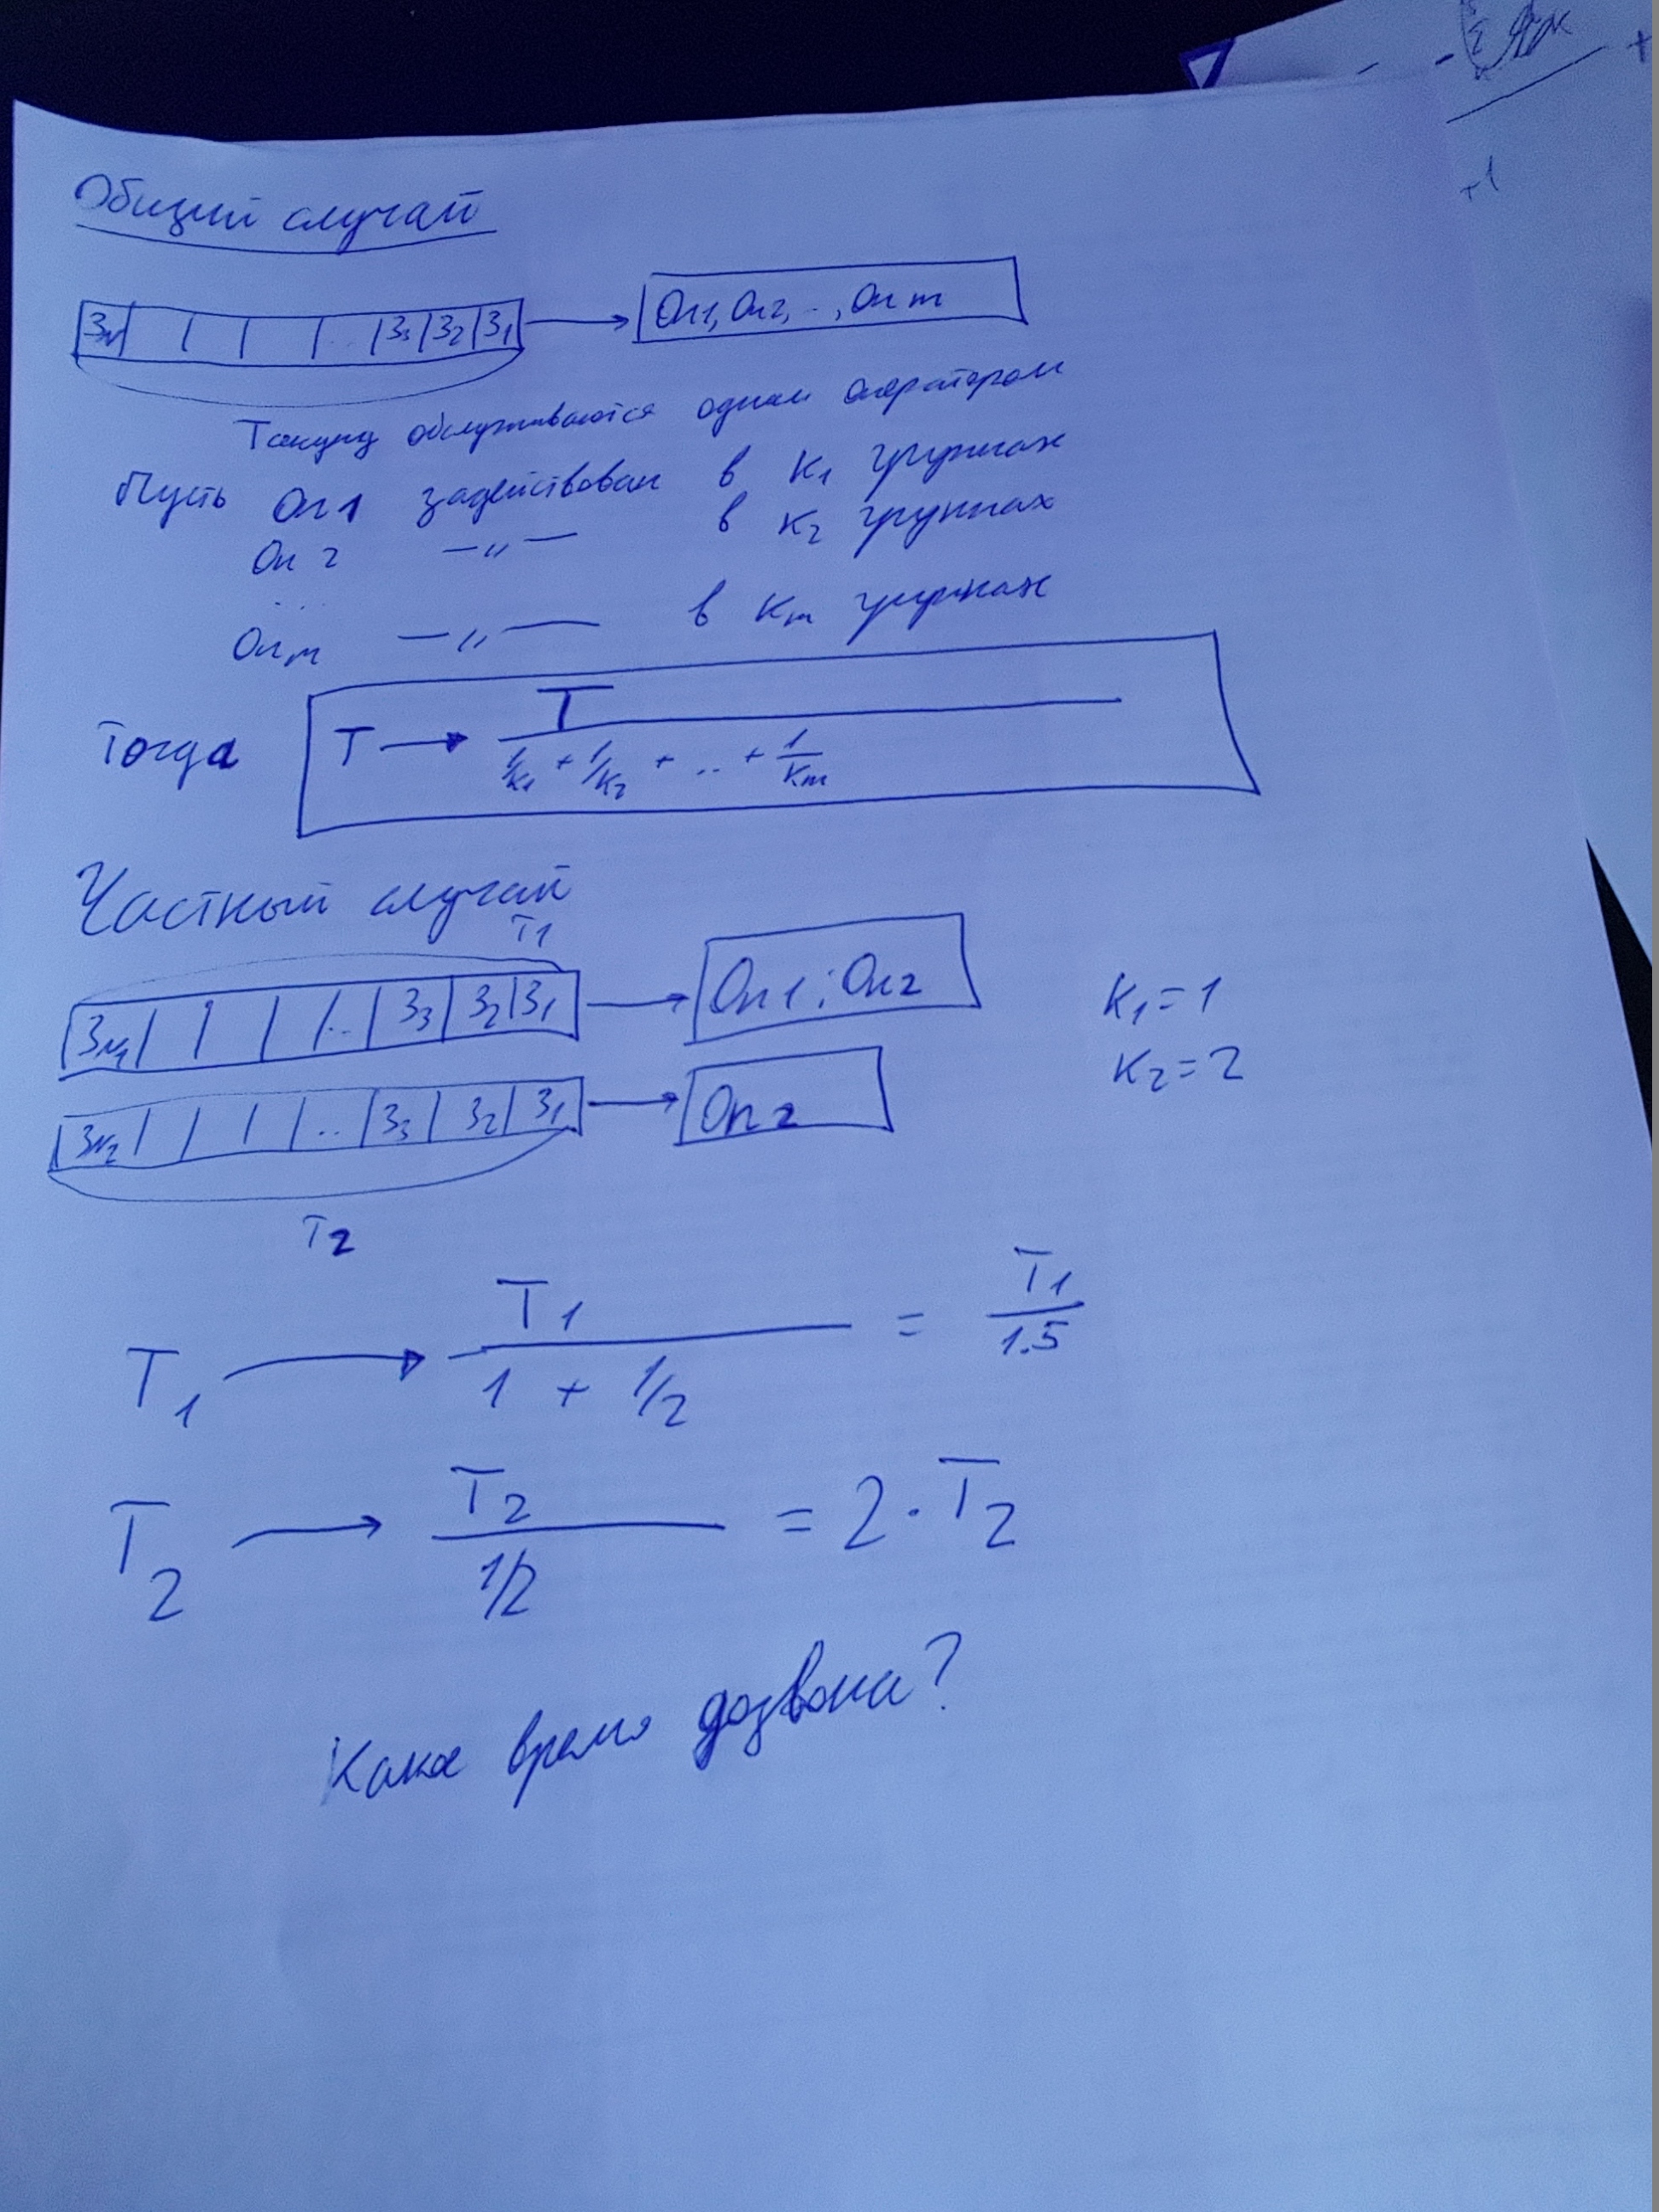 Общий случай
Зn | | | .. |З3|З2|З1 → Оп1, Оп2, .., Оп m
T секунд обслуживаются одним оператором
Пусть Оп1 задействован в K1 группах
Оп 2 —〃— в K2 группах
...
Опm —〃— в Km группах
Тогда T → T / (1/K1 + 1/K2 + .. + 1/Km)
Частный случай
T1
Зn1 | | | |..| З3 | З2 | З1 → Оп1; Оп2 K1=1
Зn2 | | | |..| З3 | З2 | З1 → Оп2 K2=2
T2
T1 → T1 / (1 + 1/2) = T1 / 1.5
T2 → T2 / (1/2) = 2·T2
Какое время дозвона?